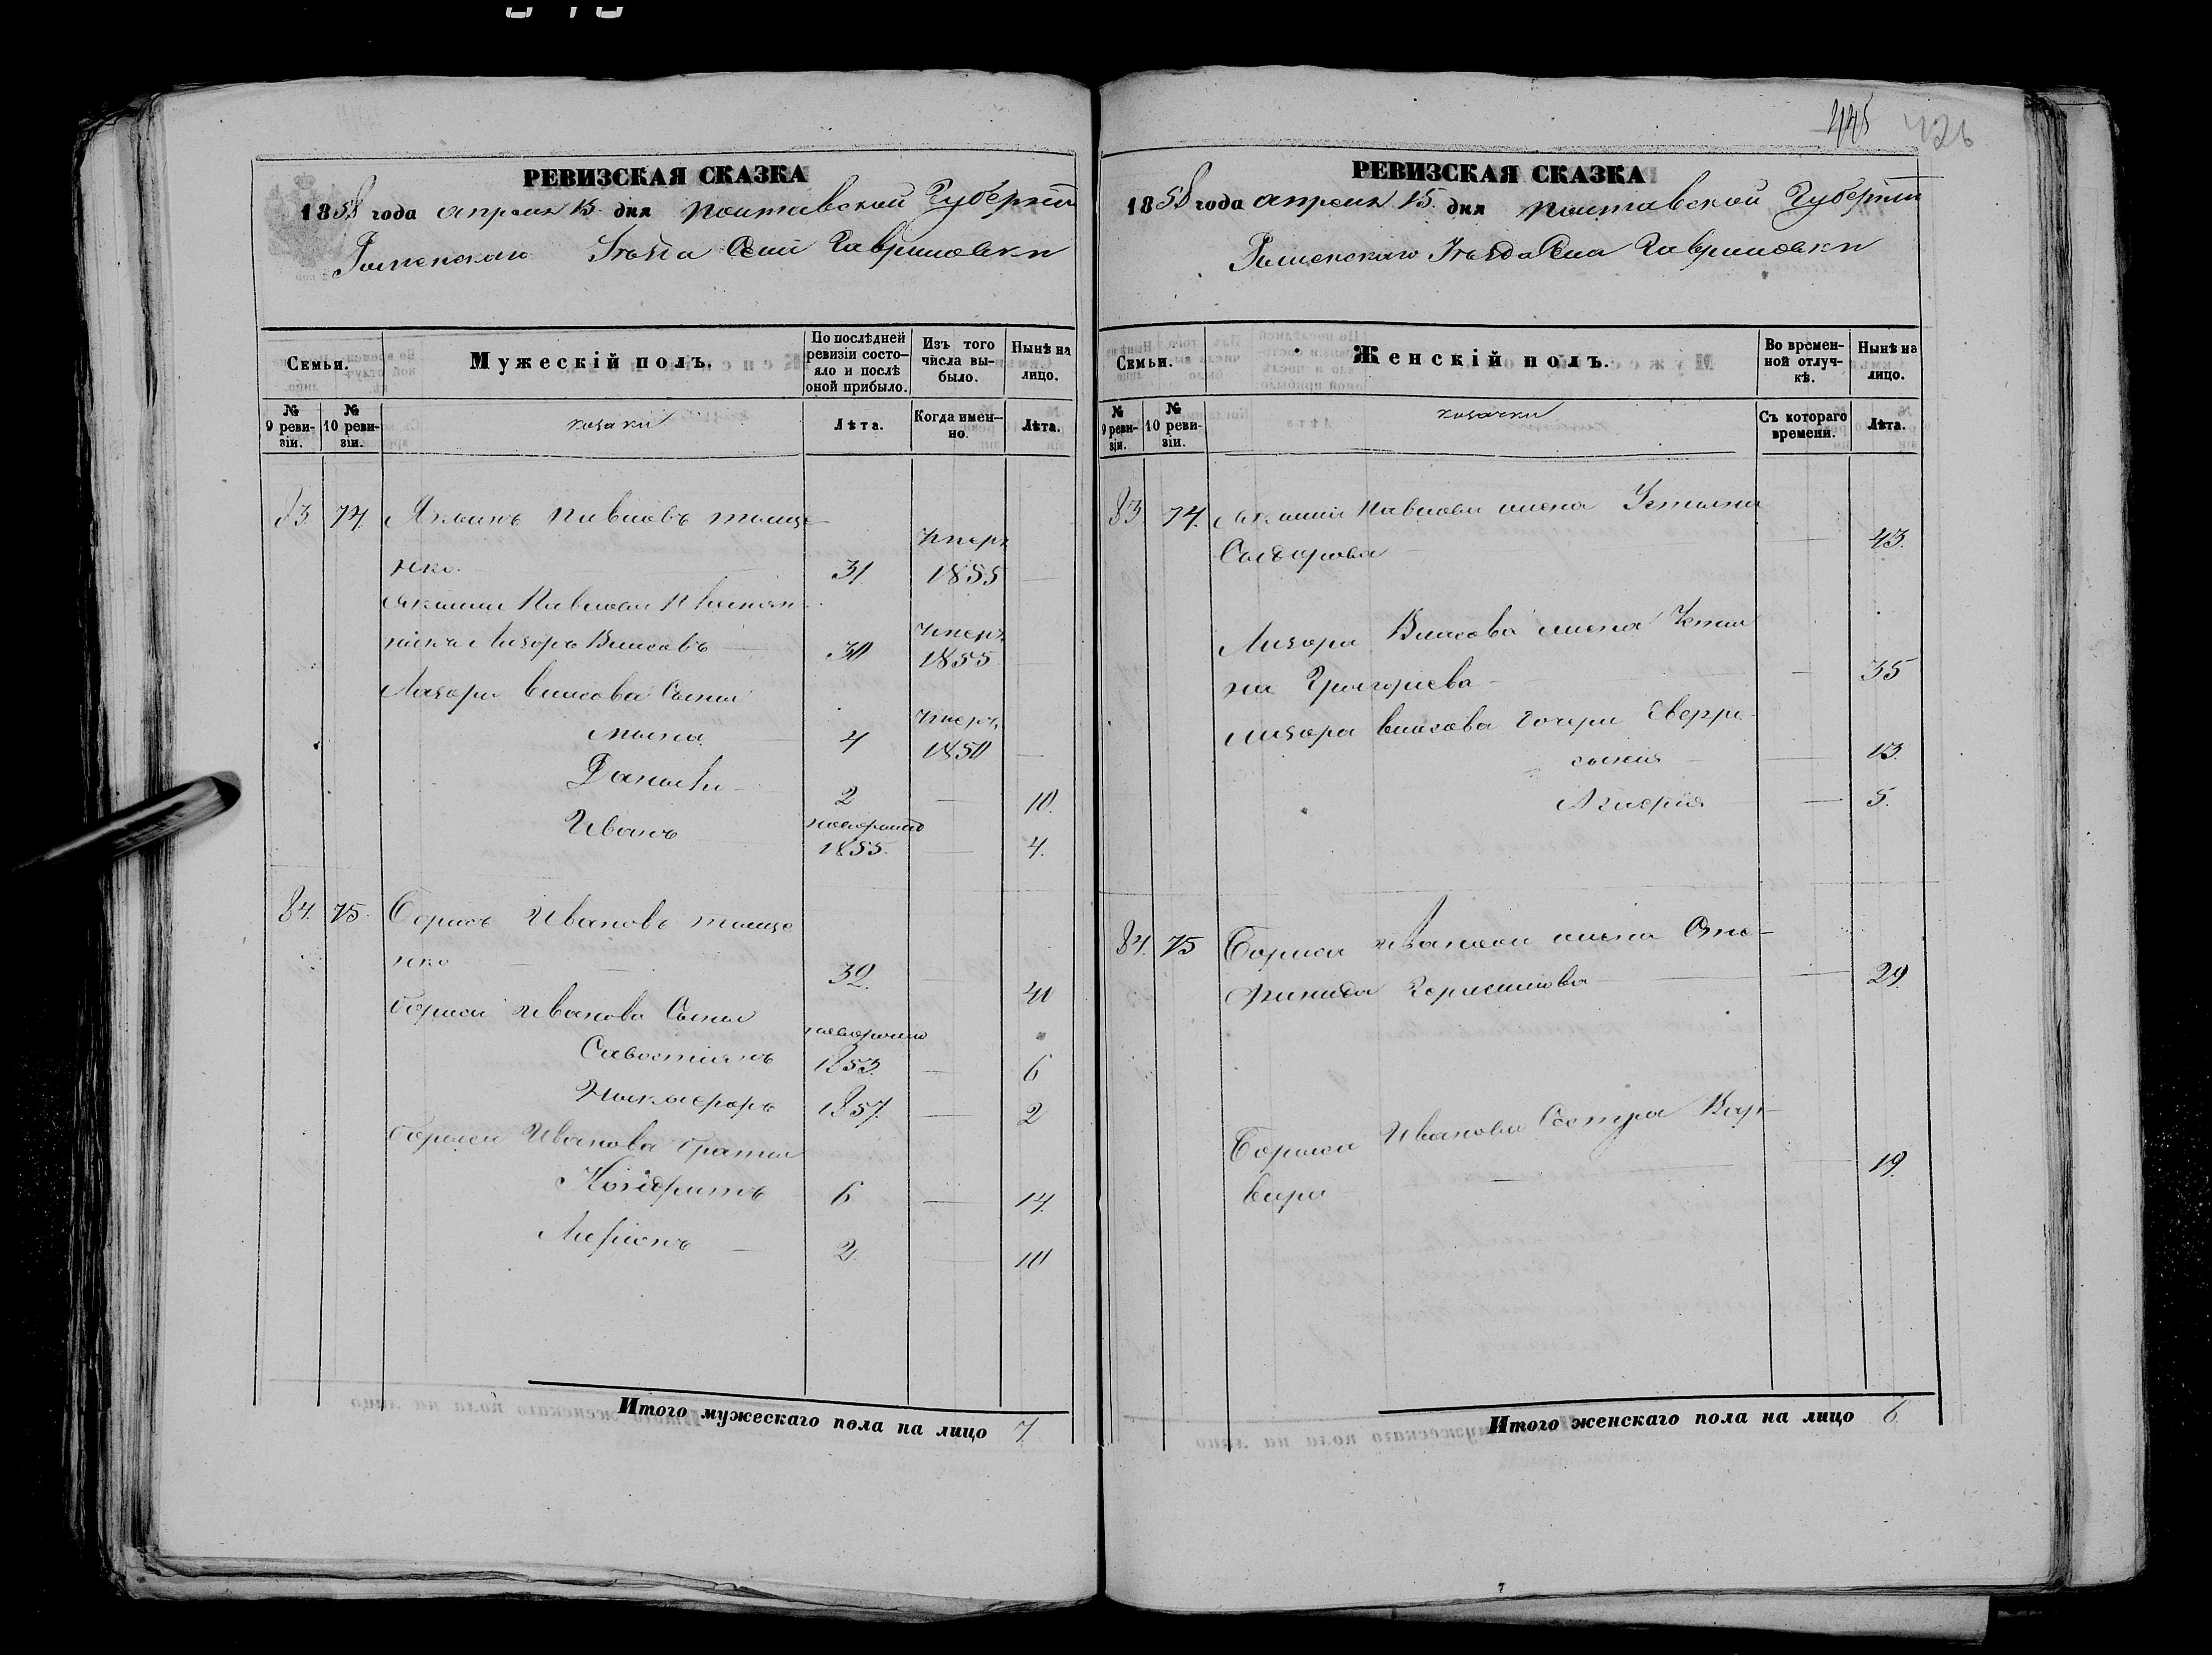 445 426
РЕВИЗСКАЯ СКАЗКА
1858 года апреля 15 дня Полтавской Губерніи
Роменскаго Уѣзда Села Гавриловки
Семьи.
Мужескій полъ.
По послѣдней ревизіи состояло и послѣ оной прибыло.
Изъ того числа выбыло.
Нынѣ на лицо.
№ 9 ревизіи.
№ 10 ревизіи.
козаки
Лѣта.
Когда именно.
Лѣта.
83. 74. Якимъ Павловъ Тыще-
нко. 31 Умеръ 1855
Акима Павлова Племян-
никъ Лазоръ Власовъ 30 Умеръ 1855
Лазоря Власова Сыны
4 Умеръ 1850
Данило 2 10.
Иванъ новорожно 1855. 4.
84. 75. Борисъ Ивановъ Тыще
нко 32. 40
Бориса Иванова Сыны
Савостіянъ новорожно 1853. 6
Никифоръ 1857. 2
Бориса Иванова братья
Кондратъ 6 14.
Ларіонъ 2. 10
Итого мужескаго пола на лицо 7.
РЕВИЗСКАЯ СКАЗКА
1858 года апреля 15. дня Полтавской Губерніи
Роменскаго Уѣзда Села Гавриловки
Семьи.
Женскій полъ.
Во временной отлучкѣ.
Нынѣ на лицо.
№ 9 ревизіи.
№ 10 ревизіи.
козачки
Съ котораго времени.
Лѣта.
83 74. Акима Павлова жена Ульяна
Сыдорова 43.
Лазоря Власова жена Ульа
на Григорьева 35
Лазоря Власова дочери Евфро-
сынія 13.
5.
84. 75 Бориса Иванова жена Сте-
панида Герасимова 29.
Бориса Иванова Сестра Вар-
вара 19.
Итого женскаго пола на лицо 6.
7